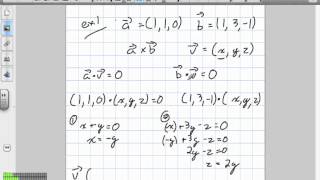 ex.1 a⃗ = (1,1,0) b⃗ = (1,3,-1)
a⃗ × b⃗ v⃗ = (x,y,z)
a⃗·v⃗ = 0 b⃗·v⃗ = 0
(1,1,0)·(x,y,z)=0 (1,3,-1)·(x,y,z)
① x+y=0 ② (x)+3y-z=0
x=-y (-y)+3y-z=0
2y-z=0
z=2y
v⃗ (